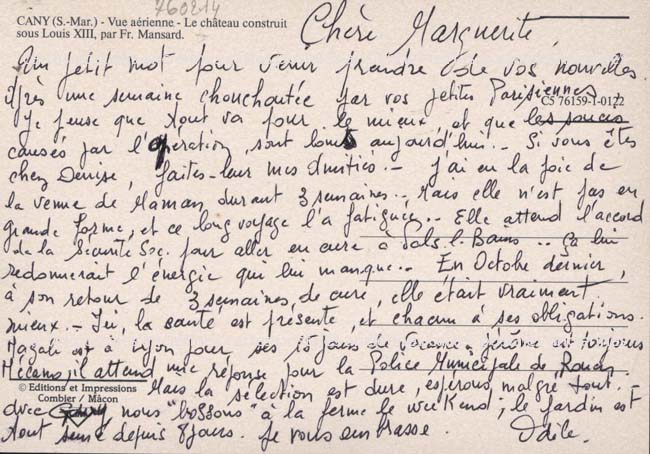 760214
CANY (S.-Mar.) - Vue aérienne - Le château construit
sous Louis XIII, par Fr. Mansard.
Chère Marguerite,
Un petit mot pour venir prendre de vos nouvelles
après une semaine chouchoutée par vos petites Parisiennes,
CS 76159-1-0122
Je pense que tout va pour le mieux, et que les soucis
causés par l'opération, sont loins aujourd'hui.- Si vous êtes
chez Denise, faites-leur mes Amitiés.- J'ai eu la joie de
la venue de Maman durant 3 semaines.. Mais elle n'est pas en
grande forme, et ce long voyage l'a fatiguée.. Elle attend l'accord
de la Sécurité Soc. pour aller en cure à Sals.l.Bains .. ça lui
redonnerait l'énergie qui lui manque.. En Octobre dernier,
à son retour de 3 semaines, de cure, elle était vraiment
mieux.- Ici, la santé est présente, et chacun à ses obligations.
Magali est à pour ses 15 jours de vacances. Jérôme est toujours
Mécano, il attend une réponse pour la Police Municipale de Rouen
© Editions et Impressions
Combier / Mâcon
Mais la sélection est dure, espérons malgré tout.
avec nous "bossons" à la ferme le week end ; le jardin est
tout semé depuis 8 jours. Je vous embrasse. Odile.